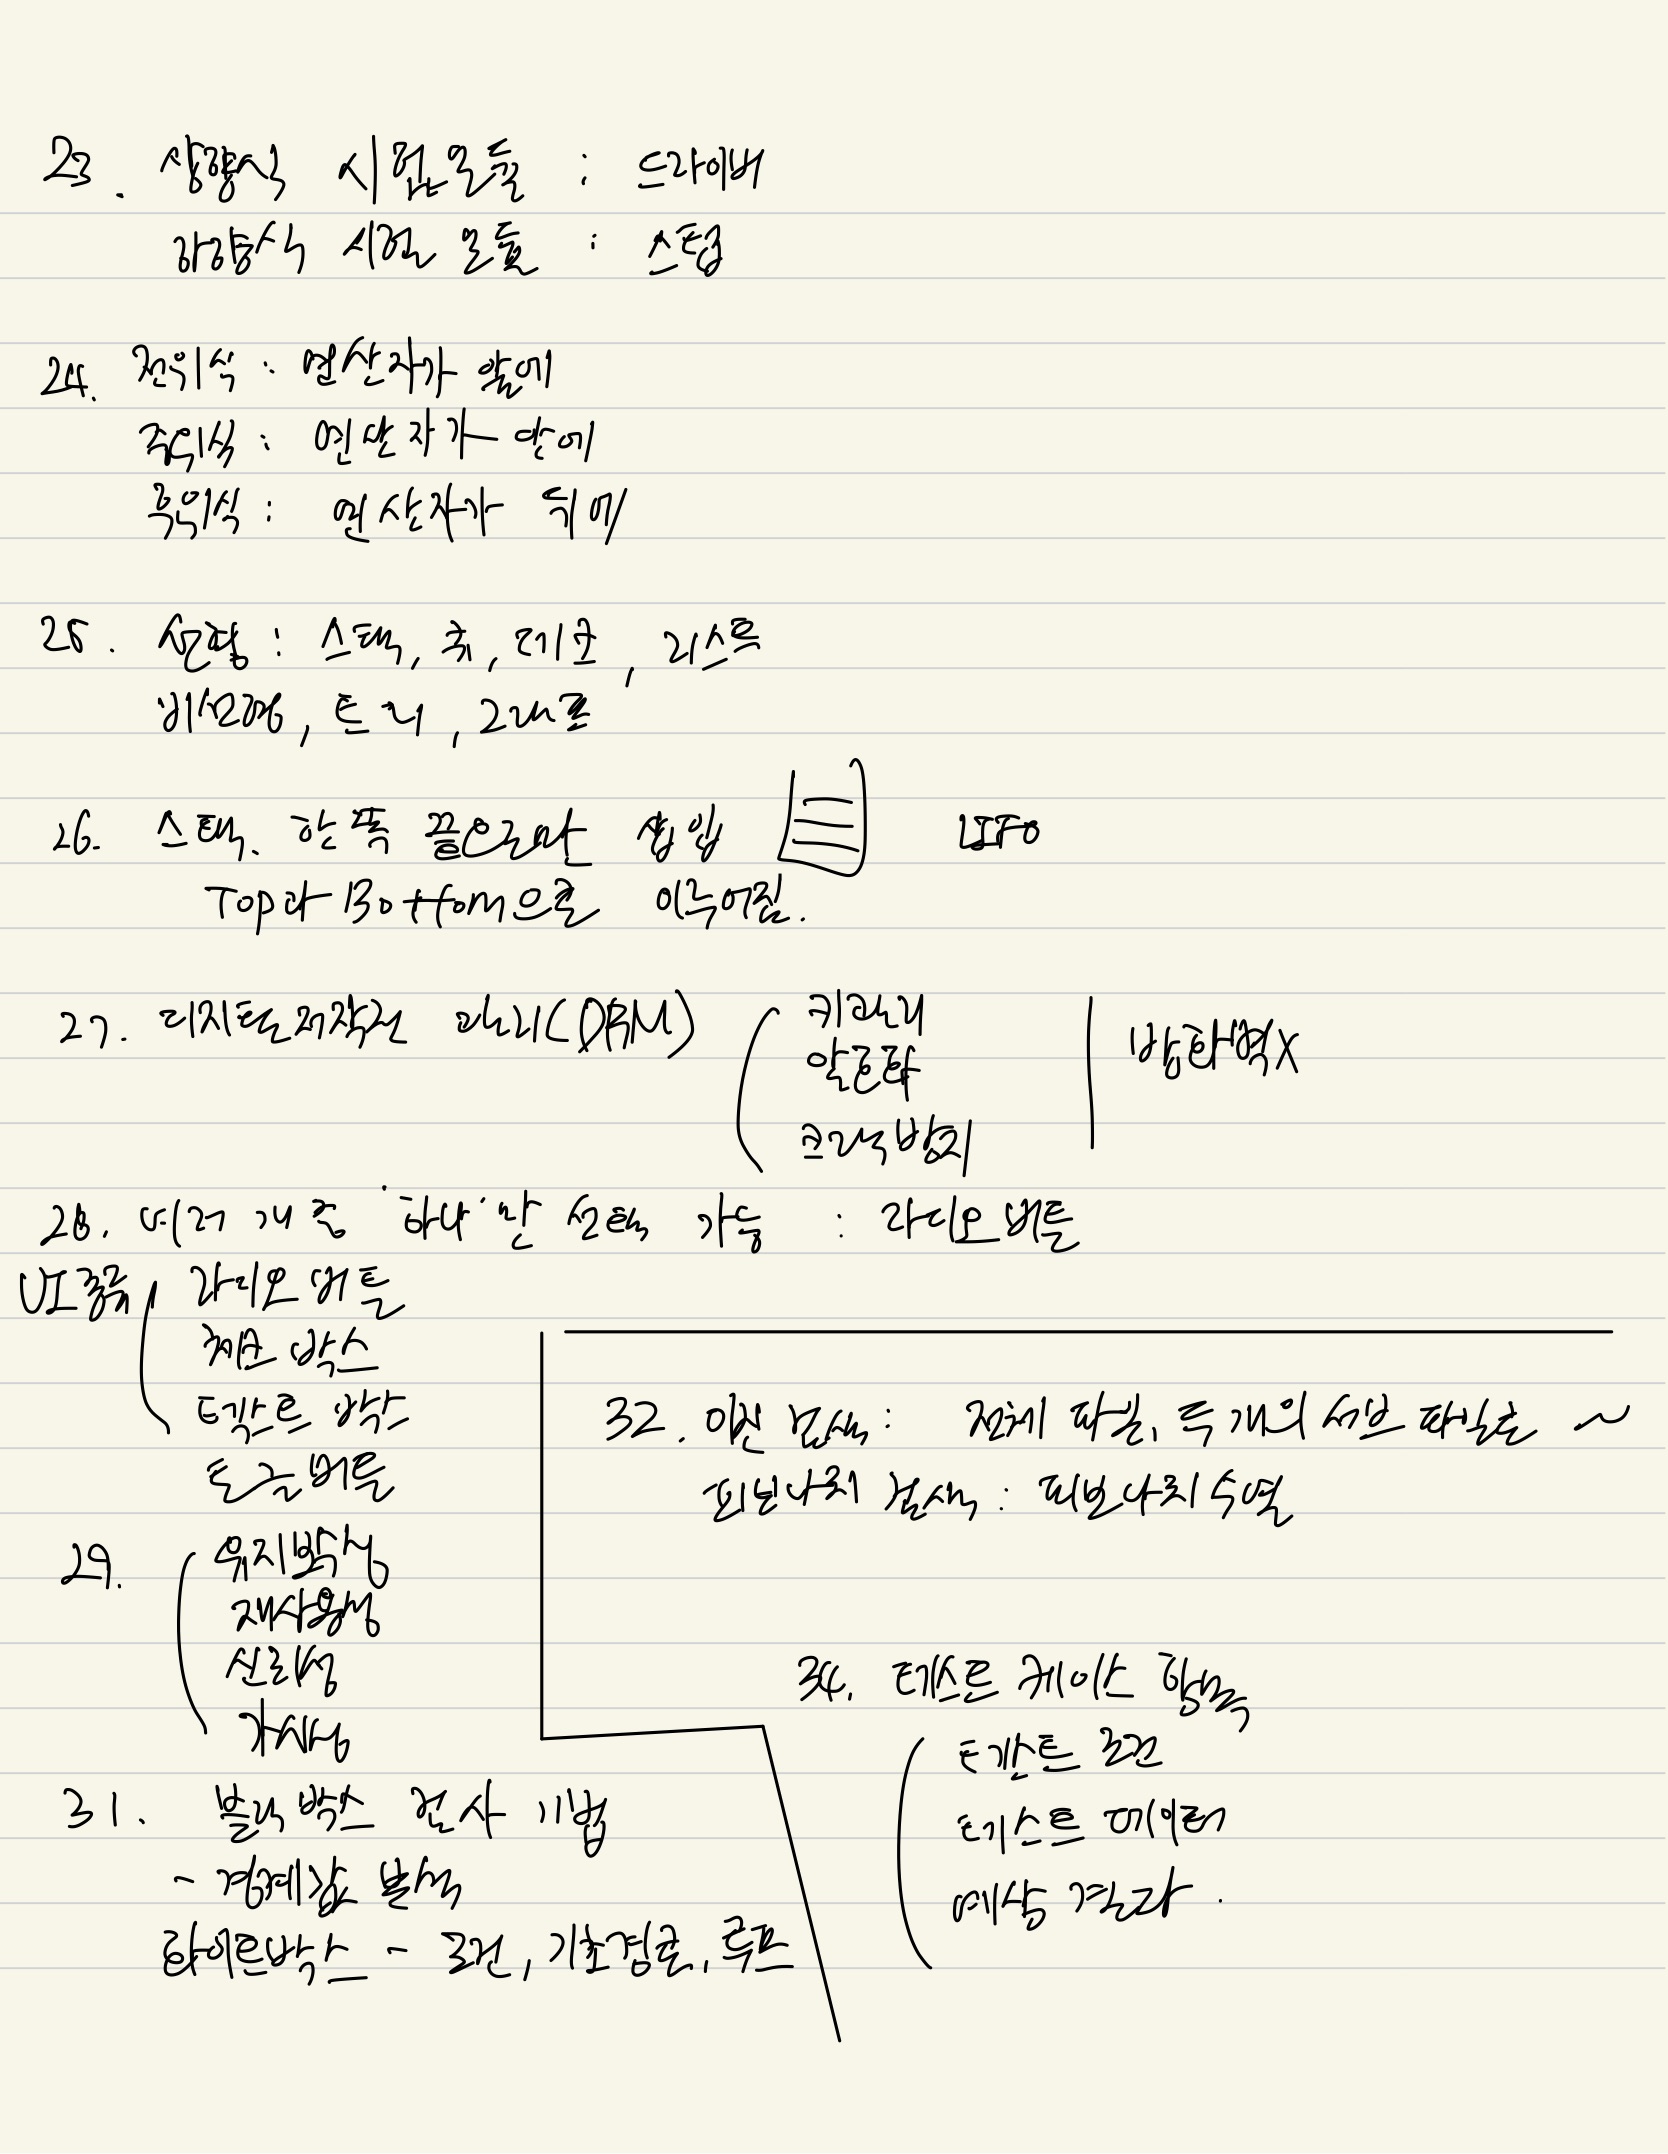 23. 상향식 시험모듈 : 드라이버
하향식 시험 모듈 : 스텁
24. 전위식 : 연산자가 앞에
중위식 : 연산자가 안에
후위식 : 연산자가 뒤에
25. 선형 : 스택, 큐, 데크, 리스트
비선형, 트리, 그래프
26. 스택. 한쪽 끝으로만 삽입 LIFO
Top과 Bottom으로 이루어짐.
27. 디지털저작권 관리(DRM)
키관리
암호화
크랙방지
방화벽X
28. 여러 개 중 '하나'만 선택 가능 : 라디오버튼
UI종류 라디오 버튼
체크 박스
텍스트 박스
토글버튼
29. 유지보수성
재사용성
신뢰성
가시성
31. 블랙박스 검사 기법
- 경계값 분석
화이트박스 - 조건, 기초경로, 루프
32. 이진 검색 : 전체 파일, 두 개의 서브 파일로 ~
피보나치 검색 : 피보나치 수열
34. 테스트 케이스 항목
테스트 조건
테스트 데이터
예상 결과.